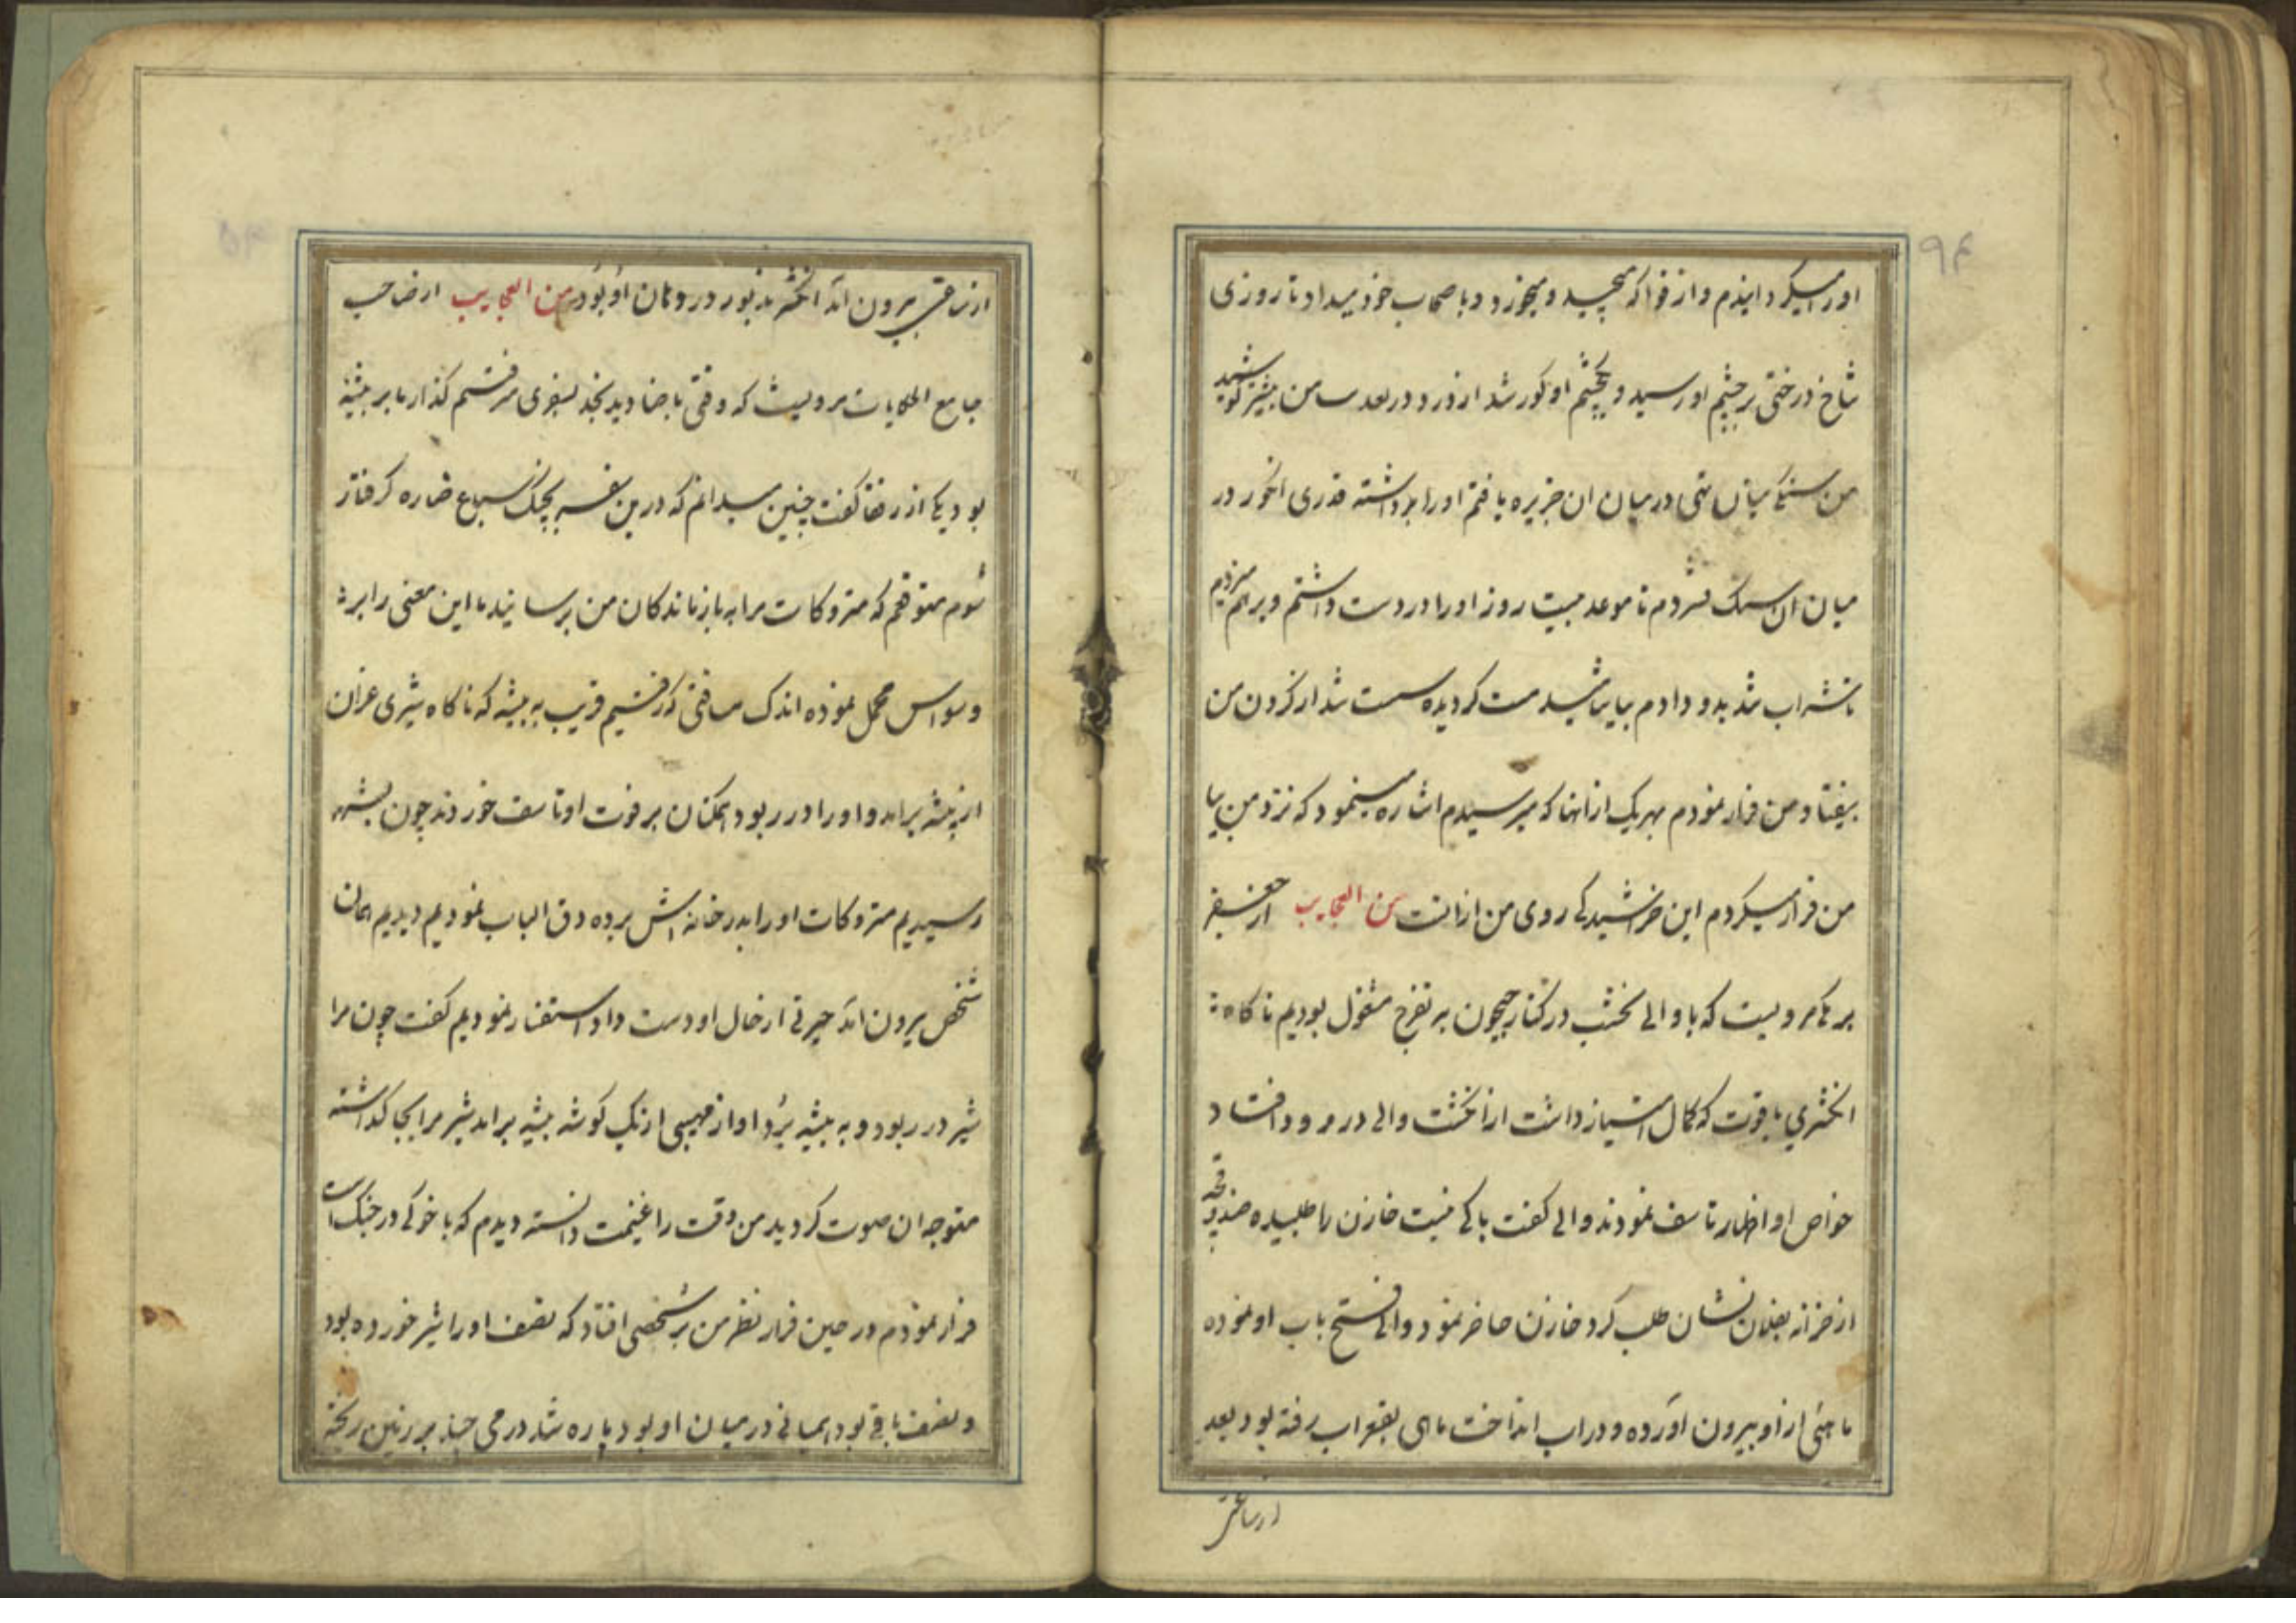 او را میکردانیدم و از فواکه میچید و میخورد و باصحاب خود میداد تا روزی
شاخ درختی بر چشم او رسید و یکچشم او کور شد از درد در بعد من بیشتر کوشید
من سنک میان تهی در میان ان جزیره یافتم او را برداشته قدری انکور در
میان ان سنک فشردم تا موعد بیست روز او را در دست داشتم و بر هم میزدم
تا شراب شد بدو دادم بیاشامید مست کردیده سست شد از کردن من
بیفتاد و من فرار نمودم بهریک از انها که میرسیدم اشاره مینمود که نزد من بیا
من فرار میکردم این خراشیدکی روی من از انست من العجایب از جعفر
برمکی مرویست که با والی نخشب در کنار جیحون به تفرج مشغول بودیم ناکاه
انکشتری یاقوت که کمال امتیاز داشت از انکشت والی در رود افتاد
خواص او اظهار تاسف نمودند والی کفت باکی نیست خازن را طلبیده صندوقچه
از خزانه بفلان نشان طلب کرد خازن حاضر نمود والی فتح باب او نموده
ماهئی از او بیرون آورده و در اب انداخت ماهی بقعر اب رفته بود بعد
از ساعتی
۹۴
از ساعتی بیرون آمد انکشتر مذبور در دهان او بود من العجایب از صاحب
جامع الحکایات مرویست که وقتی با صنادید نجد بسفری میرفتم کذار ما بر بیشهٔ
بود یکی از رفقا کفت چنین میدانم که درین سفر بچنک سباع ضاره کرفتار
شوم متوقعم که متروکات مرا به بازماندکان من برسانید ما این معنی را بر
وسواس محمل نموده اندک مسافتی که رفتیم قریب به بیشه که ناکاه شیری غران
از بیشه برامد و او را در ربود همکنان بر فوت او تاسف خوردند چون بشهر
رسیدیم متروکات او را بدر خانه اش برده دق الباب نمودیم دیدیم همان
شخص بیرون آمد حیرتی از حال او دست داد استفسار نمودیم کفت چون مرا
شیر در ربود و به بیشه برد اواز مهیبی از یک کوشه بیشه برامد شیر مرا بجا کذاشته
متوجه ان صوت کردید من وقت را غنیمت دانسته دیدم که با خوکی در جنک است
فرار نمودم در حین فرار نظر من بر شخصی افتاد که نصف او را شیر خورده بود
و نصف باقی بود همیانی در میان او بود پاره شده درمی چند بر زمین ریخته